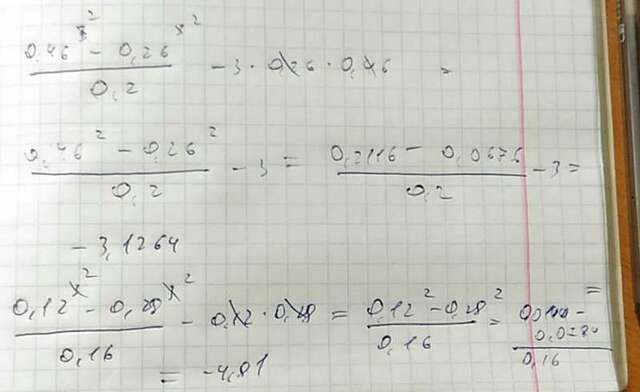 0,46² - 0,26² / 0,2 - 3 · 0,26 · 0,46 =
0,46² - 0,26² / 0,2 - 3 = 0,2116 - 0,0676 / 0,2 - 3 =
- 3,1264
0,12² - 0,28² / 0,16 - 0,12 · 0,28 = 0,12² - 0,28² / 0,16 = / 0,16 =
= -4,81